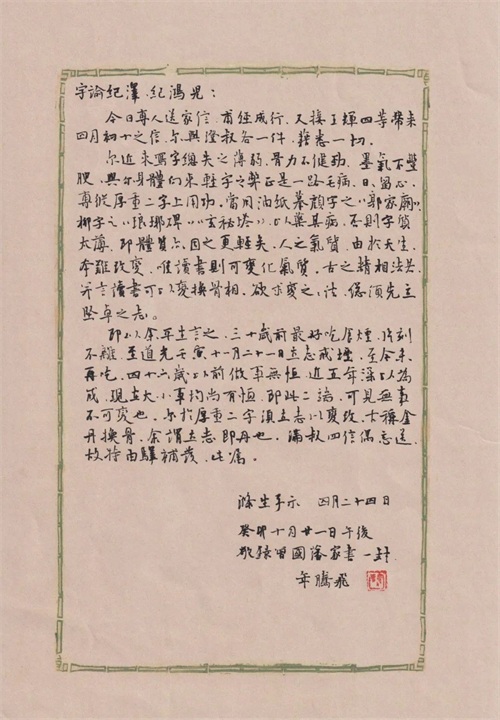 字諭紀澤、紀鴻兒：
今日專人送家信，甫經成行，又接王輝四等帶來
四月初十之信，尔與澄叔各一件，藉悉一切。
尔近来寫字總失之薄弱，骨力不健勁，墨氣不豐
腴，與尔身體向来輕字之弊正是一路毛病。日日留心，
專從厚重二字上用功，當用油紙摹顏字之《郭家廟》，
柳字之《琅琊碑》《玄秘塔》，以藥其病。否則字質
太薄，即體質亦因之更輕矣。人之氣質，由於天生，
本難改變，惟讀書則可變化氣質。古之精相法者，
并言讀書可以變換骨相。欲求變之之法，總須先立
堅卓之志。
即以余平生言之，三十歲前最好吃煙，片刻
不離，至道光壬寅十一月二十一日立志戒煙，至今未
再吃。四十六歲以前做事無恆，近五年深以為
戒，現在大小事均尚有恆，即此二端，可見無事
不可變也。尔於厚重二字須立志以變改，古稱金
丹換骨，余謂立志即丹也。滿叔四信偶忘送，
故特由驛補發，此囑。
滌生手示 四月二十四日
癸卯十月廿一日午後
敬錄曾國藩家書一封
年騰飛